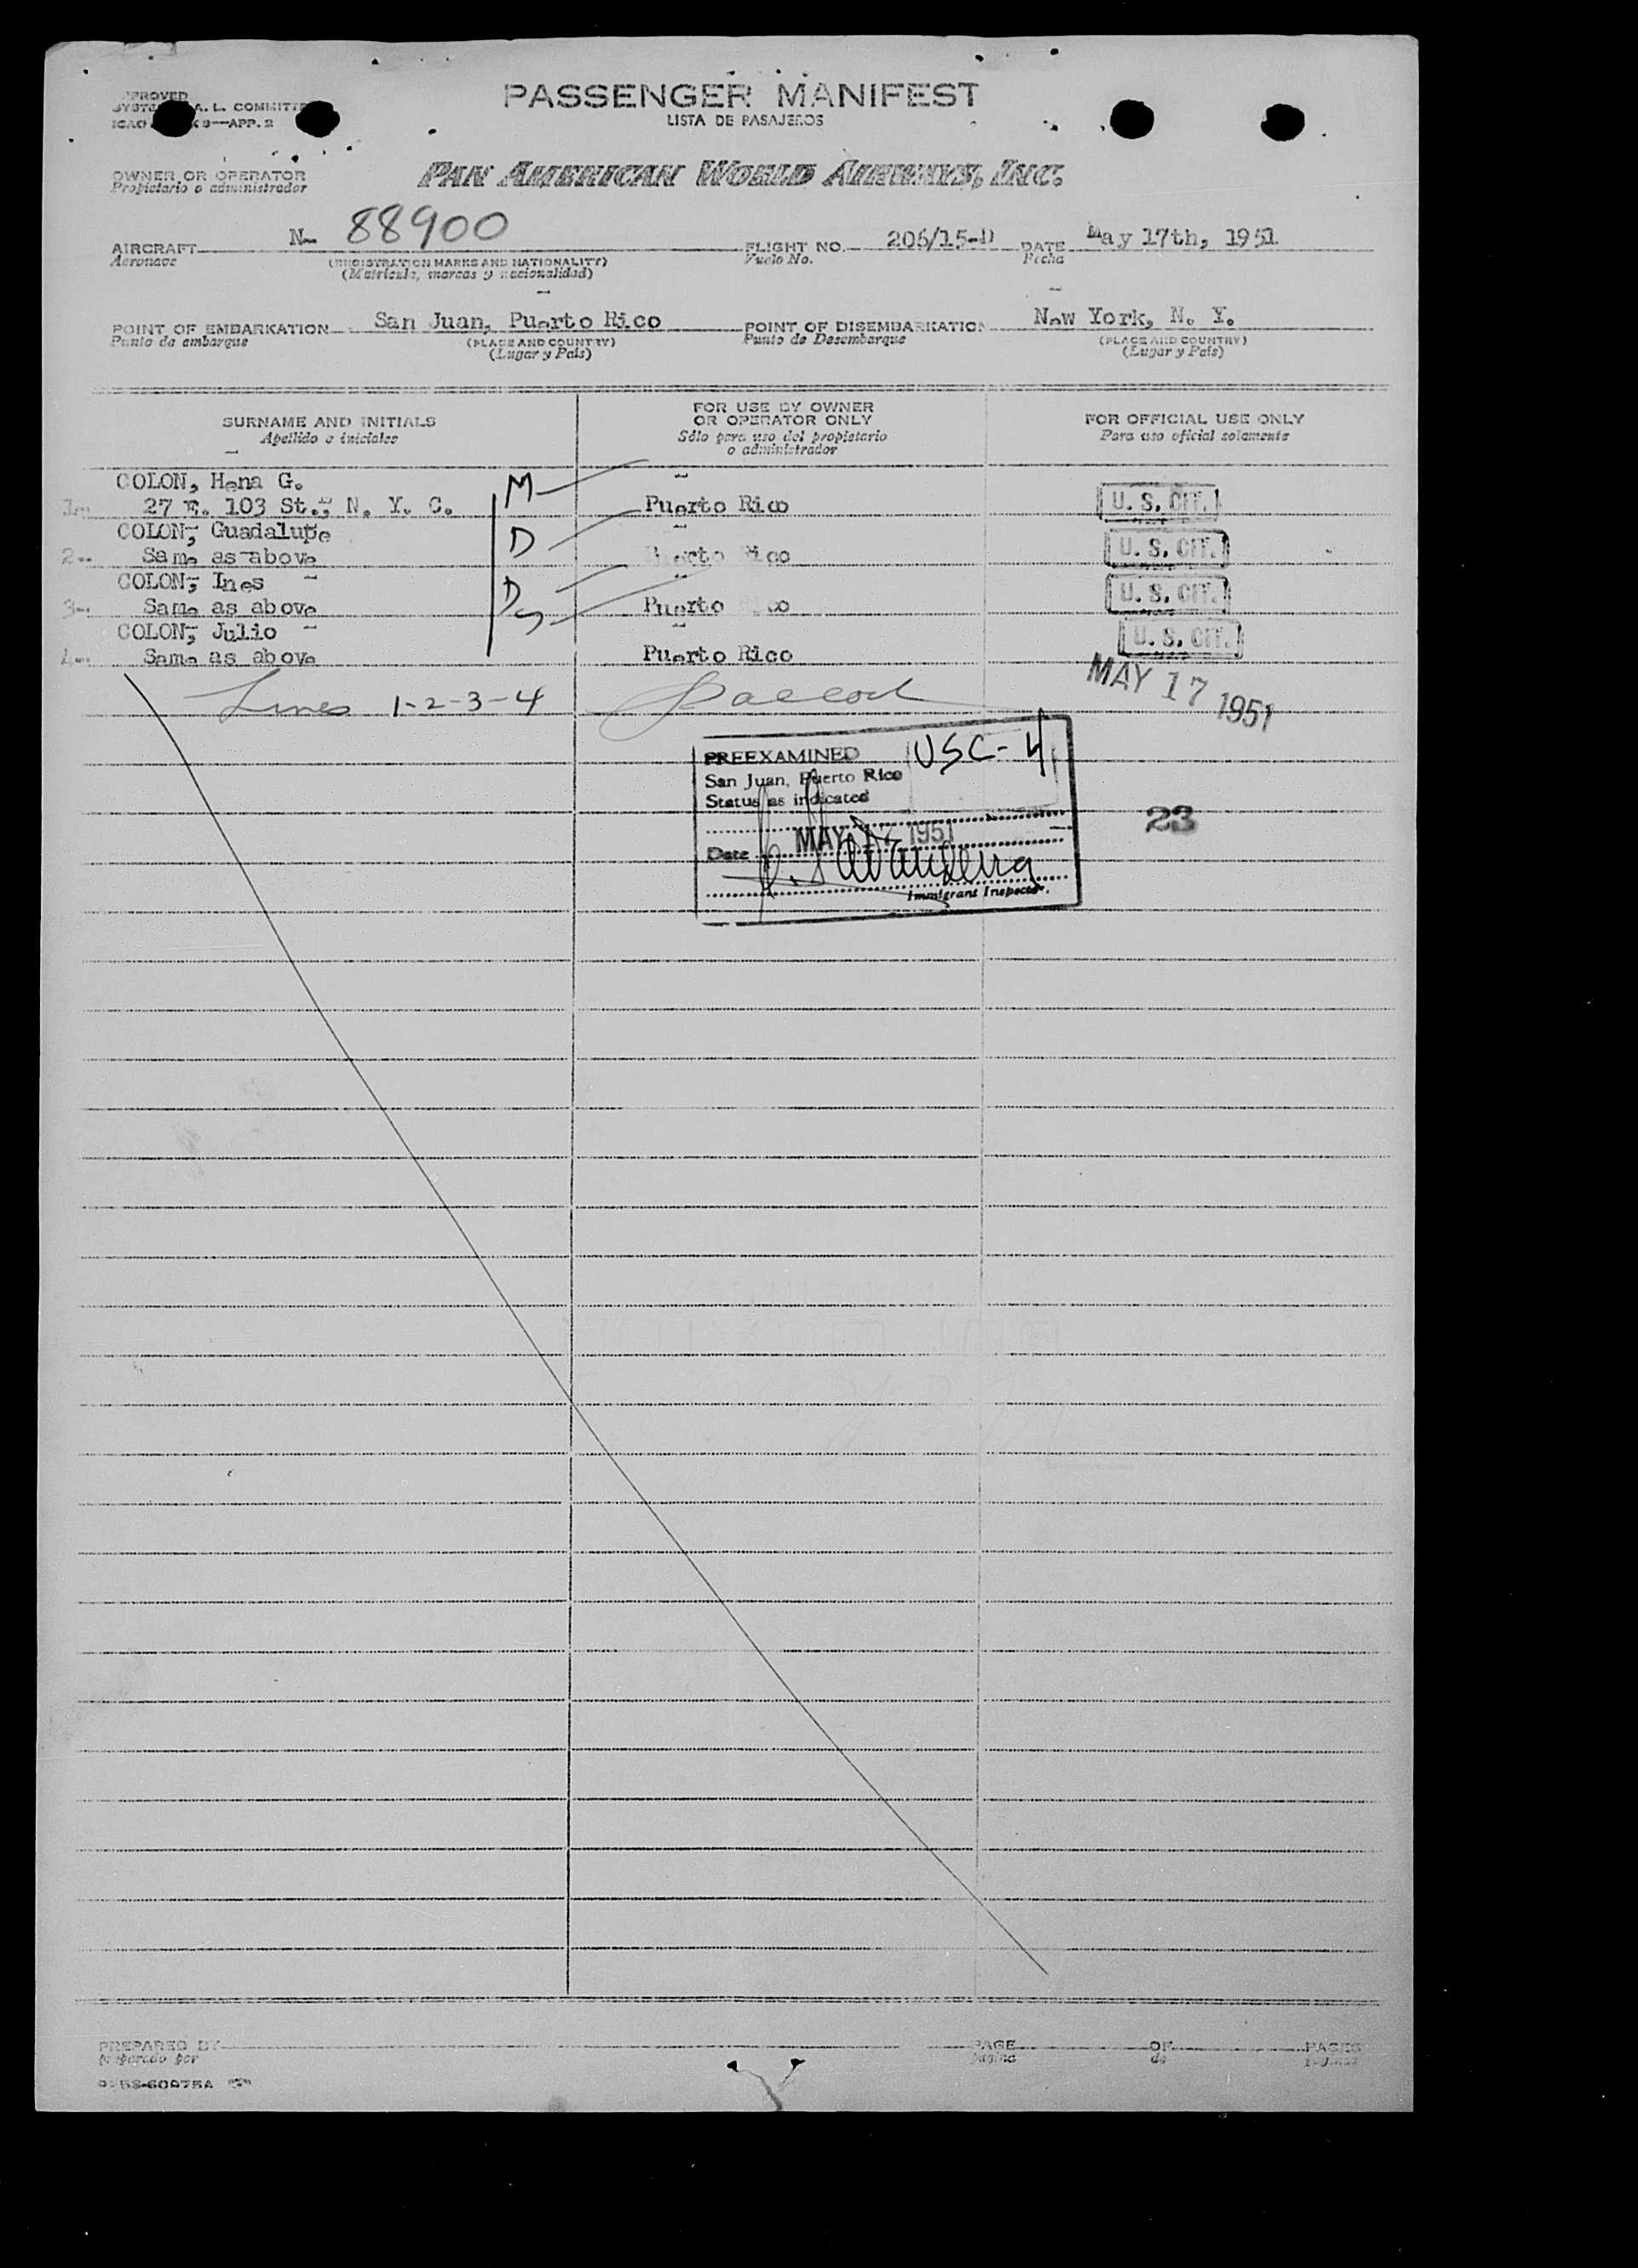 PASSENGER MANIFEST
LISTA DE PASAJEROS
APP. 2
OWNER OR OPERATOR
Propietario o administrador
PAN AMERICAN WORLD AIRWAYS, INC.
AIRCRAFT N- 88900 FLIGHT NO. 206/15-D DATE May 17th, 1951
Aeronave Vuelo No. Fecha
(REGISTRATION MARKS AND NATIONALITY)
(Matrícula, marcas y nacionalidad)
POINT OF EMBARKATION San Juan, Puerto Rico POINT OF DISEMBARKATION New York, N. Y.
Punto de embarque (PLACE AND COUNTRY) Punto de Desembarque (PLACE AND COUNTRY)
(Lugar y País) (Lugar y País)
SURNAME AND INITIALS FOR USE BY OWNER OR OPERATOR ONLY FOR OFFICIAL USE ONLY
Apellido e iniciales Sólo para uso del propietario o administrador Para uso oficial solamente
COLON, Hena G. M
1-- 27 E. 103 St., N. Y. C. Puerto Rico U. S. CIT.
COLON, Guadalupe D
2-- Same as above Puerto Rico U. S. CIT.
COLON, Ines D
3-- Same as above S Puerto Rico U. S. CIT.
COLON, Julio
4-- Same as above Puerto Rico U. S. CIT.
Lines 1-2-3-4
MAY 17 1951
PREEXAMINED USC-4
San Juan, Puerto Rico
Status as indicated
Date MAY 17 1951
Immigrant Inspector.
23
PREPARED BY PAGE OF PAGES
preparado por página de páginas